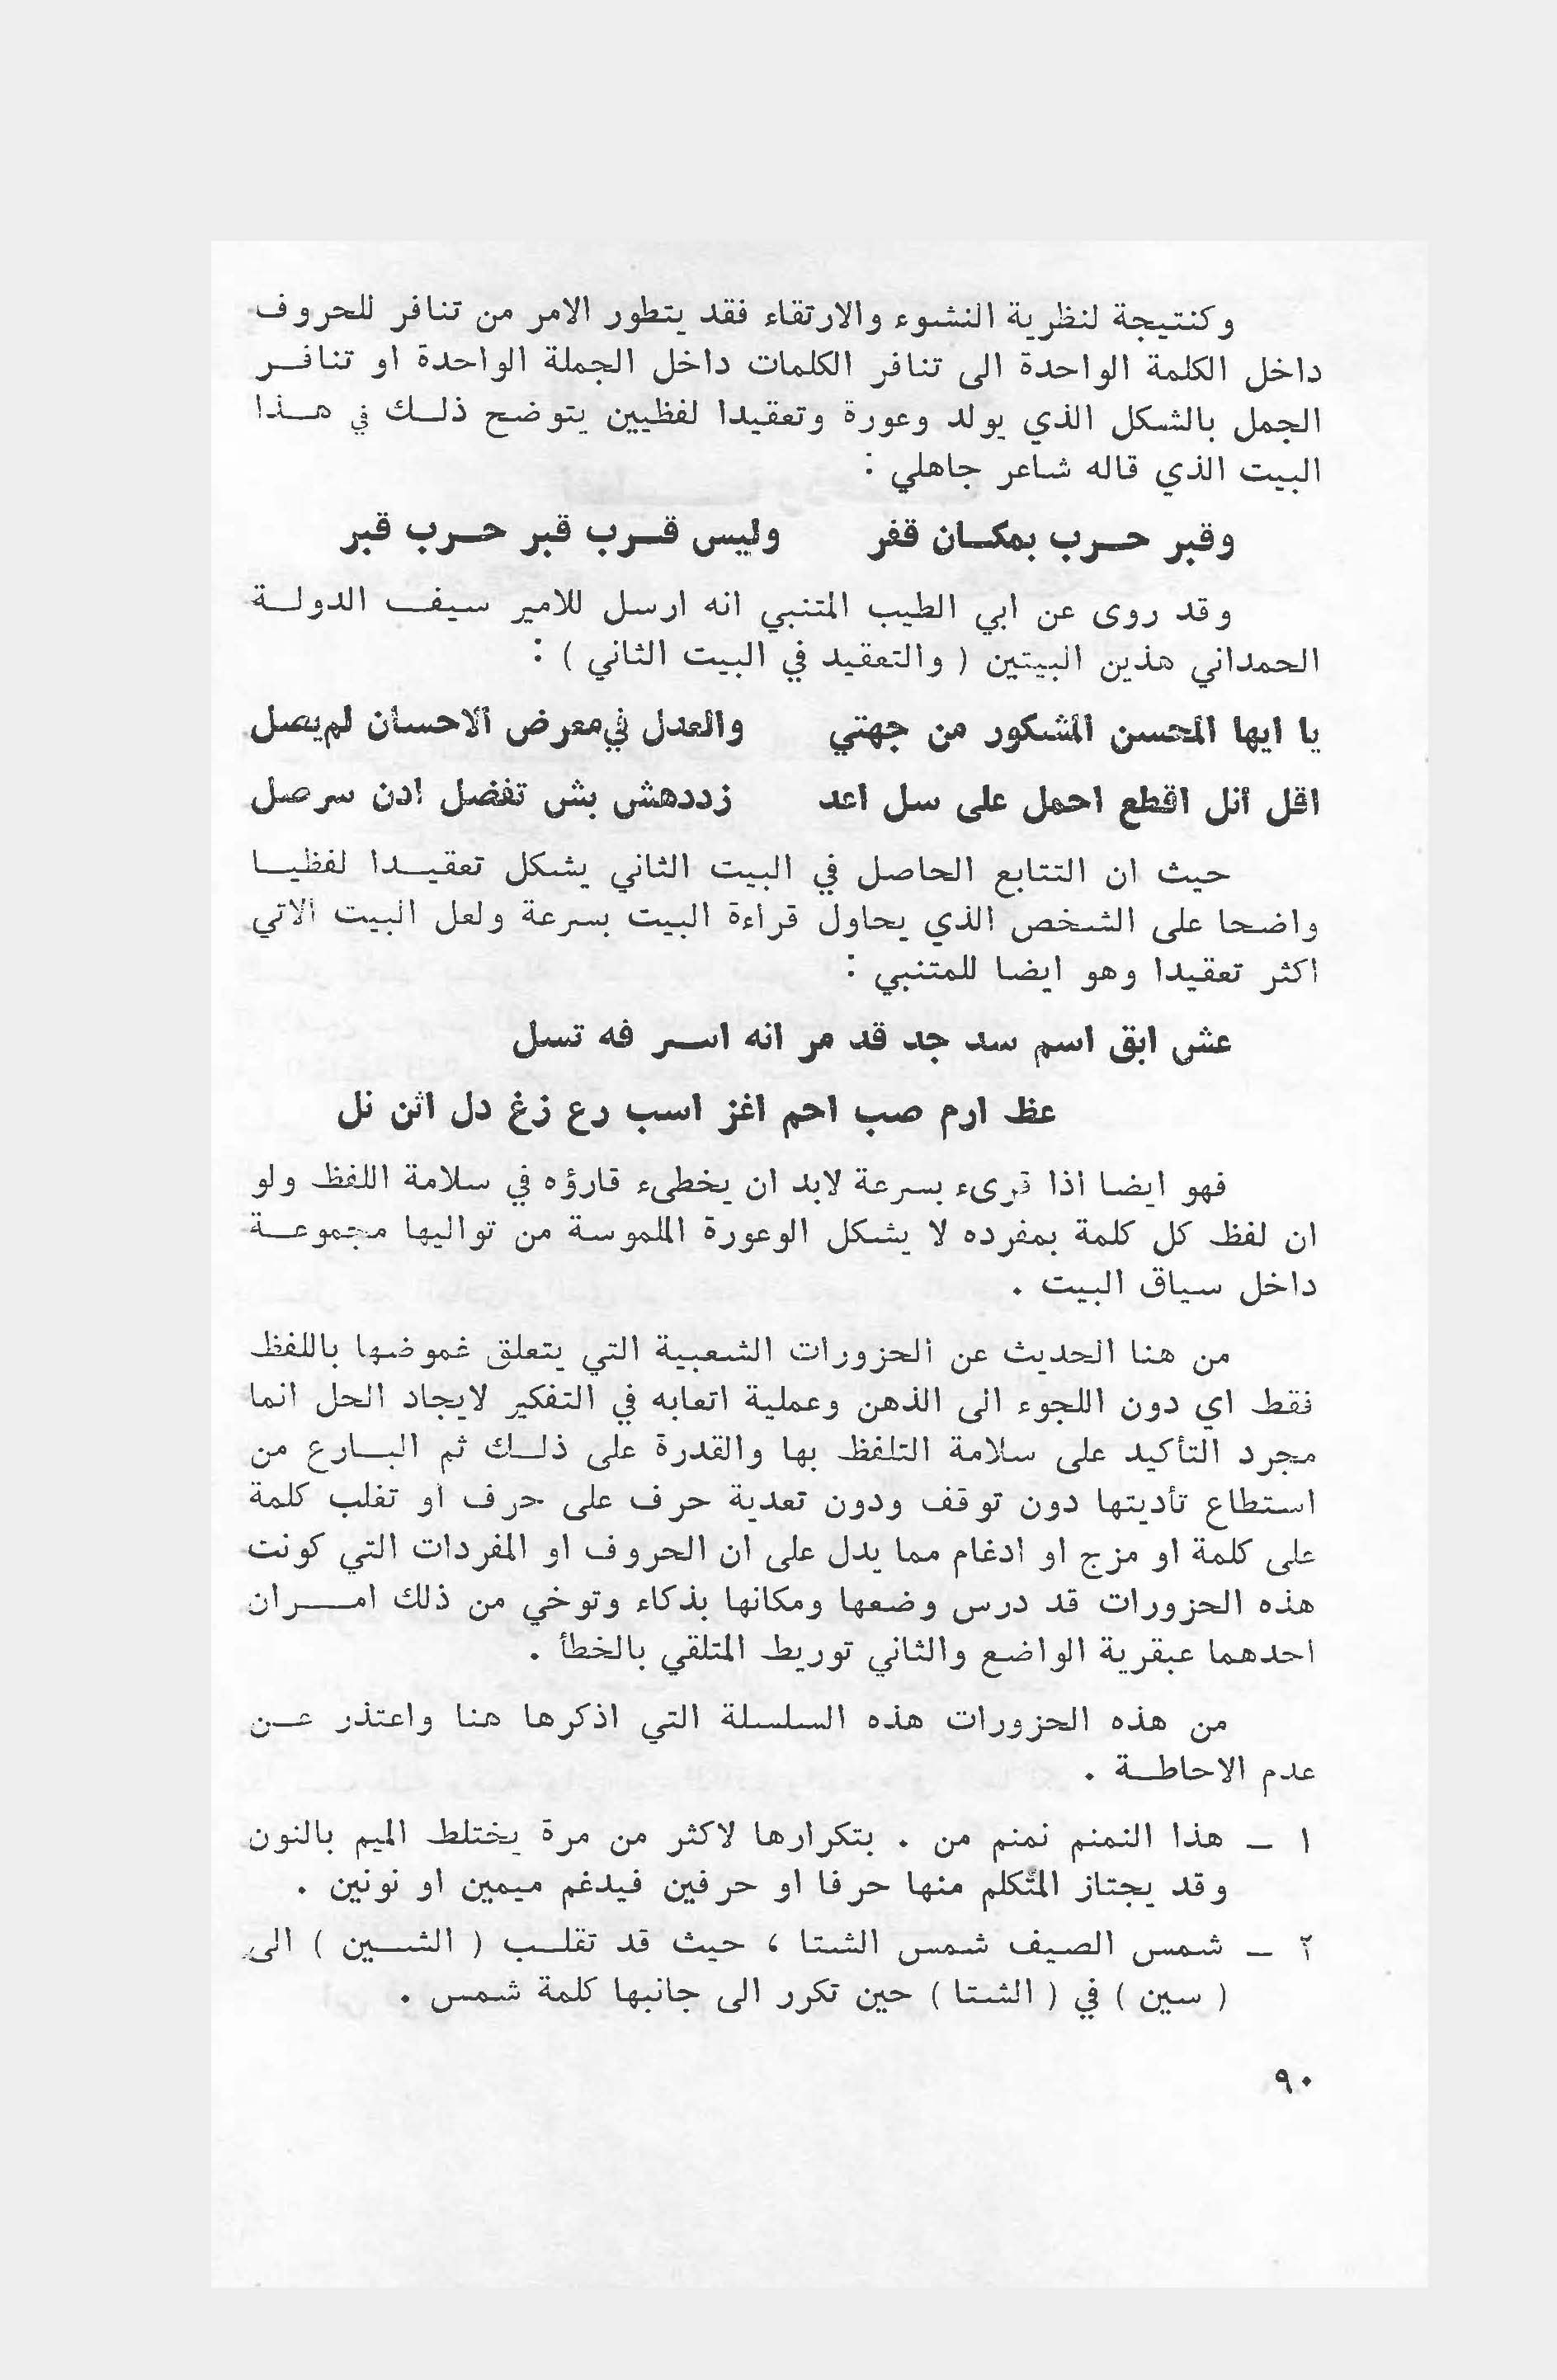 وكنتيجة لنظرية النشوء والارتقاء فقد يتطور الامر من تنافر للحروف
داخل الكلمة الواحدة الى تنافر الكلمات داخل الجملة الواحدة او تنافـر
الجمل بالشكل الذي يولد وعورة وتعقيدا لفظيين يتوضح ذلـك في هـذا
البيت الذي قاله شاعر جاهلي :
وقبر حـرب بمكـان قفر وليس قـرب قبر حـرب قبر
وقد روى عن ابي الطيب المتنبي انه ارسل للامير سيف الدولـة
الحمداني هذين البيتين ( والتعقيد في البيت الثاني ) :
يا ايها المحسن المشكور من جهتي والعدل في معرض الاحسان لم يصل
اقل انل اقطع احمل على سل اعد زد دهش بش تفضل ادن سر صل
حيث ان التتابع الحاصل في البيت الثاني يشكل تعقيـدا لفظيـا
واضحا على الشخص الذي يحاول قراءة البيت بسرعة ولعل البيت الاتي
اكثر تعقيدا وهو ايضا للمتنبي :
عش ابق اسم سد جد قد مر انه اسـر فه تسل
عظ ارم صب احم اغز اسب رع زغ دل اثن نل
فهو ايضا اذا قرىء بسرعة لابد ان يخطىء قارؤه في سلامة اللفظ ولو
ان لفظ كل كلمة بمفرده لا يشكل الوعورة الملموسة من تواليها مجموعـة
داخل سياق البيت .
من هنا الحديث عن الحزورات الشعبية التي يتعلق غموضها باللفظ
فقط اي دون اللجوء الى الذهن وعملية اتعابه في التفكير لايجاد الحل انما
مجرد التأكيد على سلامة التلفظ بها والقدرة على ذلـك ثم البـارع من
استطاع تأديتها دون توقف ودون تعدية حرف على حرف او تغلب كلمة
على كلمة او مزج او ادغام مما يدل على ان الحروف او المفردات التي كونت
هذه الحزورات قد درس وضعها ومكانها بذكاء وتوخي من ذلك امـران
احدهما عبقرية الواضع والثاني توريط المتلقي بالخطأ .
من هذه الحزورات هذه السلسلة التي اذكرها هنا واعتذر عـن
عدم الاحاطـة .
١ ـ هذا النمنم نمنم من . بتكرارها لاكثر من مرة يختلط الميم بالنون
وقد يجتاز المتكلم منها حرفا او حرفين فيدغم ميمين او نونين .
٢ ـ شمس الصيف شمس الشتا ، حيث قد تقلـب ( الشـين ) الى
( سين ) في ( الشتا ) حين تكرر الى جانبها كلمة شمس .
٩٠